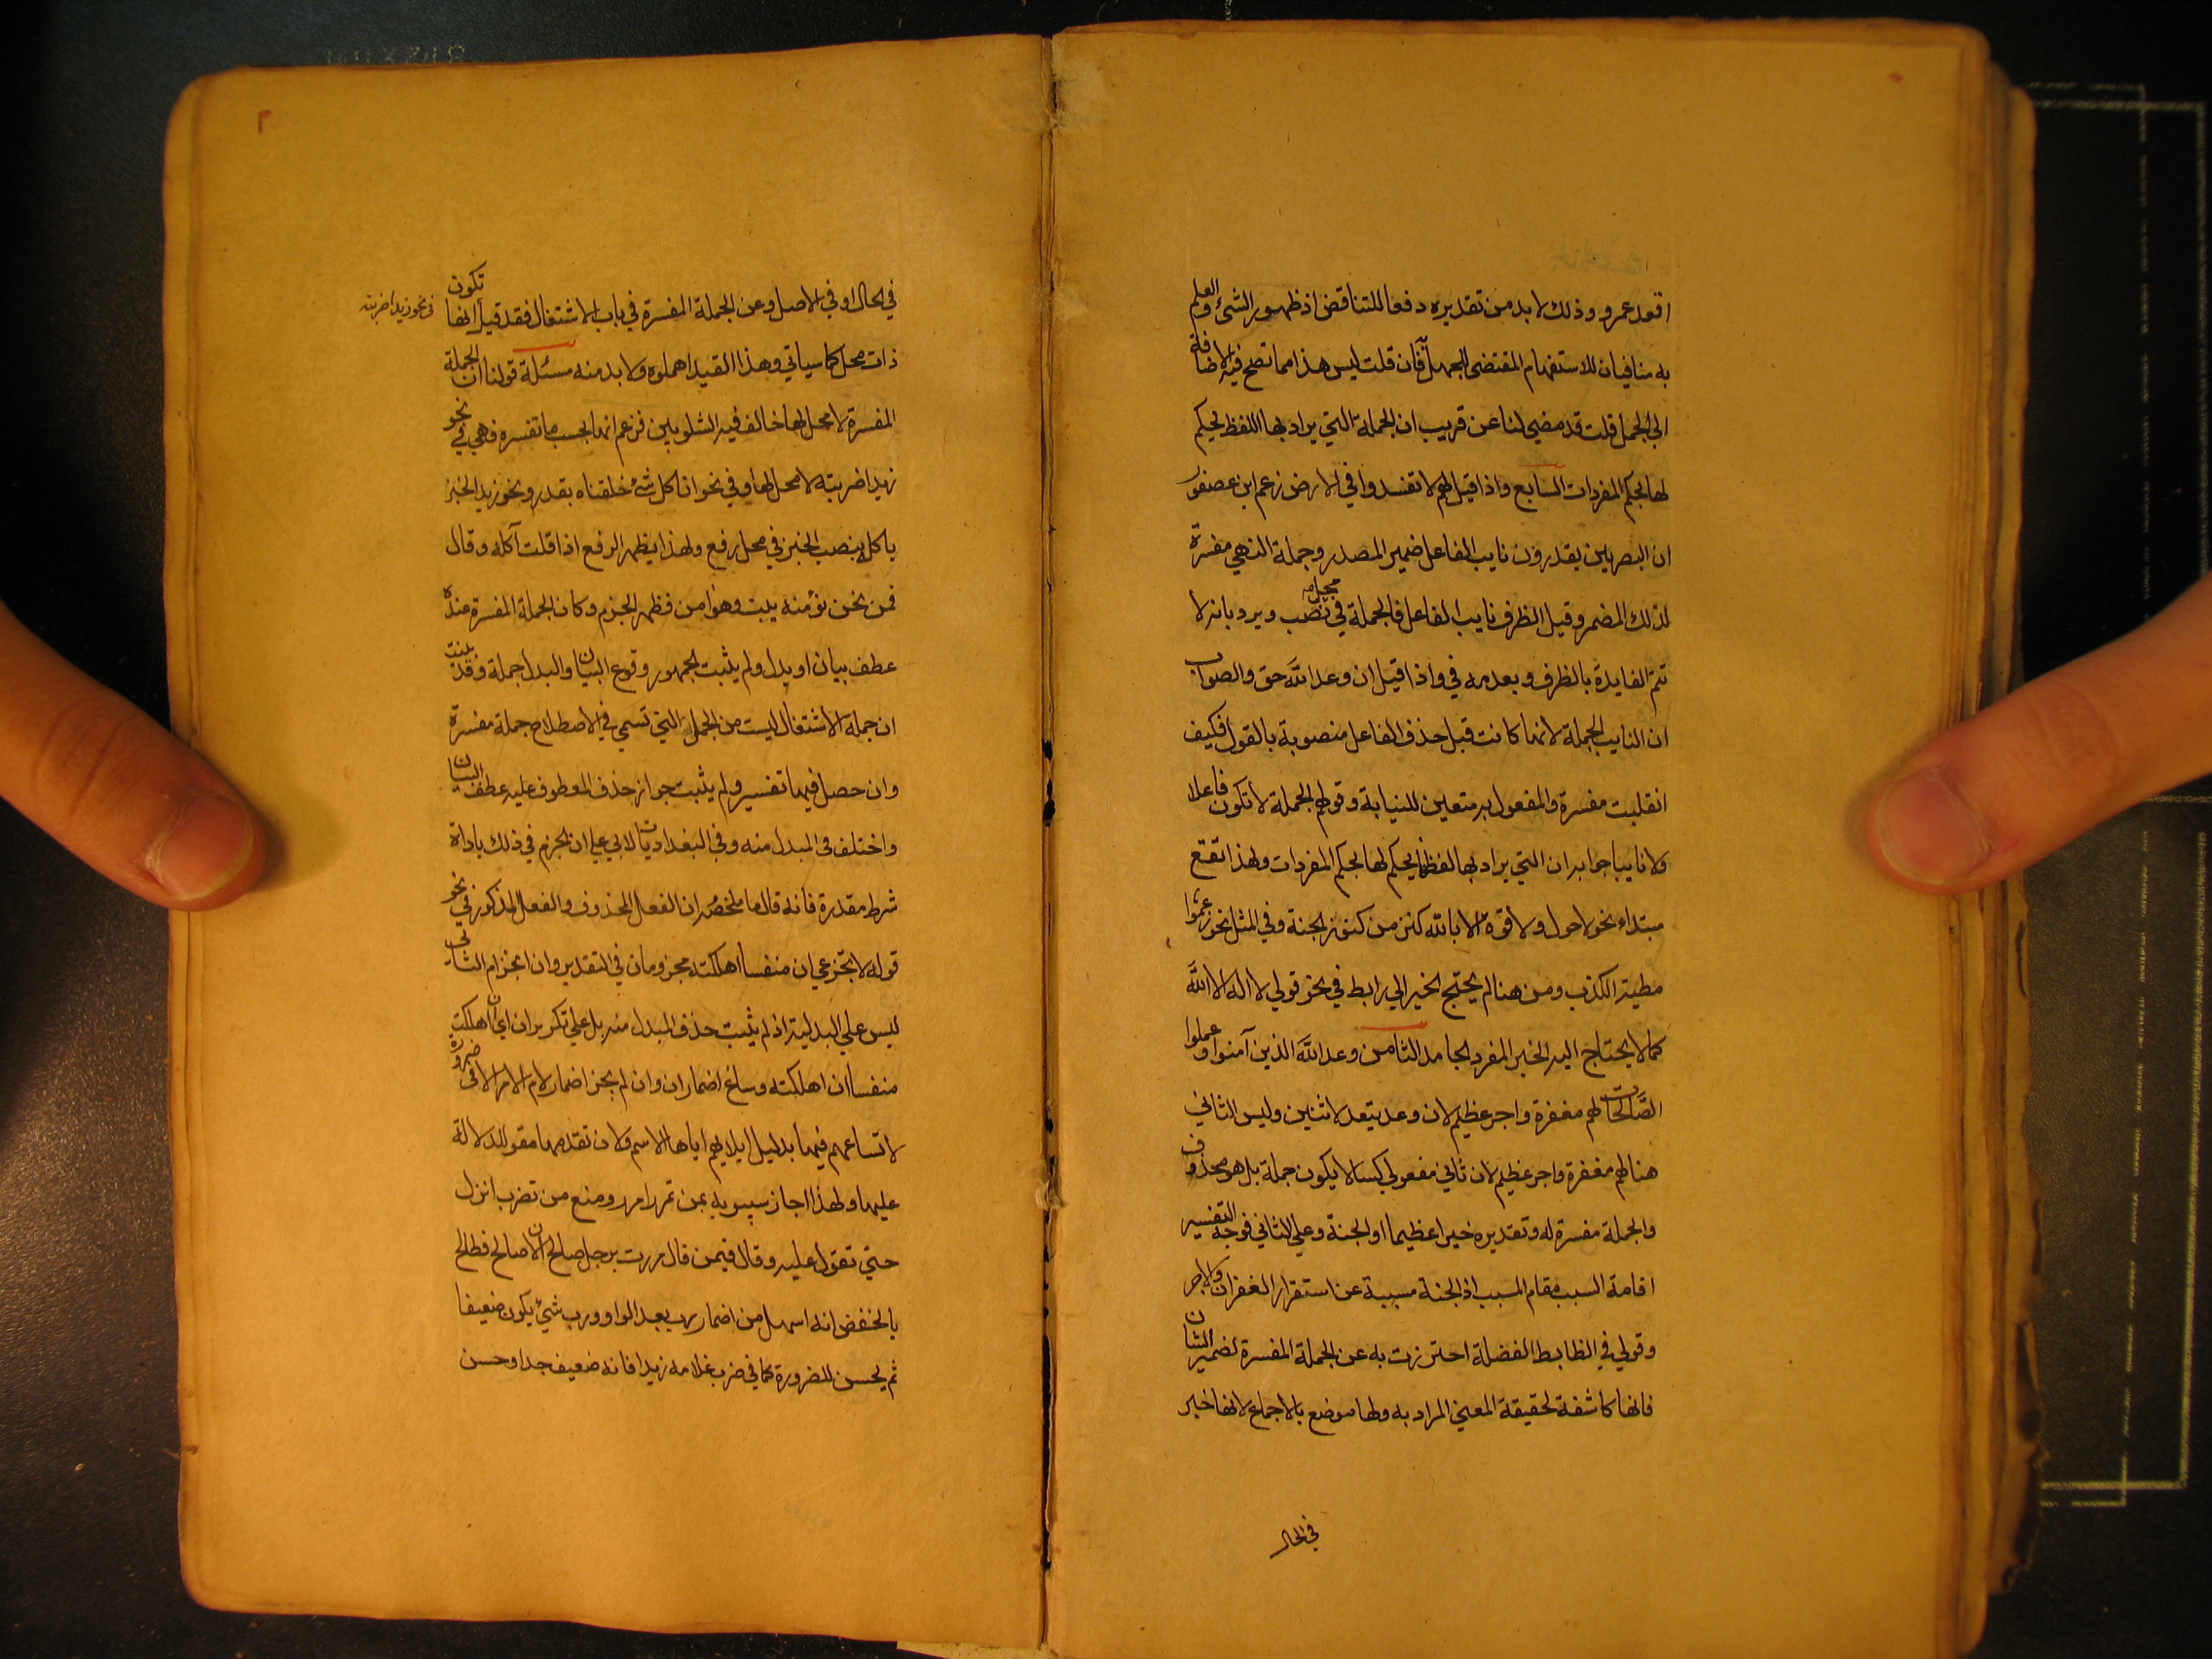 اقعد عمرو وذلك لا بد من تقديره دفعا للتناقض اذ ظهور الشئ والعلم
به منافيان للاستفهام المقتضى للجهل به فان قلت ليس هذا مما تصح فيه الاضافة
الى الجمل قلت قد مضي لنا عن قريب ان الجملة التي يراد بها اللفظ يحكم
لها بحكم المفردات السابع واذا قيل لهم لا تفسدوا في الارض زعم ابن عصفور
ان البصريين يقدرون نايب الفاعل ضمير المصدر وجملة النهي مفسرة
لذلك المضمر وقيل الظرف نايب الفاعل فالجملة في محل نصب ويرد بانه لا
تتم الفايدة بالظرف وبعدمه في واذا قيل ان وعد الله حق والصواب
ان النايب الجملة لانها كانت قبل حذف الفاعل منصوبة بالقول فكيف
انقلبت مفسرة والمفعول به متعين للنيابة وقولهم الجملة لا تكون فاعلا
ولا نايبا جوابه ان التي يراد بها لفظها يحكم لها بحكم المفردات ولهذا تقع
مبتداء نحو لا حول ولا قوة الا بالله كنز من كنوز الجنة وفي المثل نحو زعموا
مطية الكذب ومن هنا لم يحتج الخبر الي رابط في نحو قولي لا اله الا الله
كما لا يحتاج اليه الخبر المفرد الجامد الثامن وعد الله الذين آمنوا وعملوا
الصالحات لهم مغفرة واجر عظيم لان وعد يتعد لاثنين وليس الثاني
هنا لهم مغفرة واجر عظيم لان ثاني مفعولي كسا لا يكون جملة بل هو محذوف
والجملة مفسرة له وتقديره خيرا عظيما او الجنة وعلي الثاني فوجه التفسير
اقامة السبب مقام المسبب اذ الجنة مسببة عن استقرار الغفران والاجر
وقولي في الظابط الفضلة احترزت به عن الجملة المفسرة لضمير الشان
فانها كاشفة لحقيقة المعني المراد به ولها موضع بالاجماع لانها خبر
في الحال
٢
في الحال او في الاصل وعن الجملة المفسرة في باب الاشتغال فقد قيل انها تكون
في نحو زيدا ضربته
ذات محل كما سياتي وهذا القيد اهملوه ولا بد منه مسئلة قولنا ان الجملة
المفسرة لا محل لها خالف فيه الشلوبين فزعم انها بحسب ما تفسره فهي في نحو
زيدا ضربته لا محل لها وفي نحو انا كل شئ خلقناه بقدر ونحو زيد الخبز
ياكله بنصب الخبز في محل رفع ولهذا يظهر الرفع اذا قلت آكله وقال
فمن نحن نؤمنه يبت وهو امن فظهر الجزم وكان الجملة المفسرة عنده
عطف بيان او بدل ولم يثبت الجمهور وقوع البيان والبدل جملة وقد بينت
ان جملة الاشتغال ليست من الجمل التي تسمي في الاصطلاح جملة مفسرة
وان حصل فيها تفسير ولم يثبت جواز حذف المعطوف عليه عطف البيان
واختلف فى المبدل منه وفي البغداديات لابي علي ان الجزم في ذلك باداة
شرط مقدرة فانه قال ما ملخصه ان الفعل المحذوف والفعل المذكور في نحو
قوله لا تجزعي ان منفسا اهلكته مجزومان في التقدير وان انجزام الثاني
ليس علي البدلية اذ لم يثبت حذف المبدل منه بل علي تكرير ان اي ان اهلكت
منفسا ان اهلكته وساغ اضمار ان وان لم يجز اضمار لام الامر الا في ضرورة
لاتساعهم فيها بدليل ايلايهم اياها الاسم ولان تقدمها مقو للدلالة
عليها ولهذا اجاز سيبويه بمن تمرر امرر ومنع من تضرب انزل
حتي تقول عليه وقال فيمن قال مررت برجل صالح ان لا صالح فطالح
بالخفض انه اسهل من اضمار رب بعد الواو ورب شئ يكون ضعيفا
ثم يحسن للضرورة كما في ضرب غلامه زيدا فانه ضعيف جدا وحسن